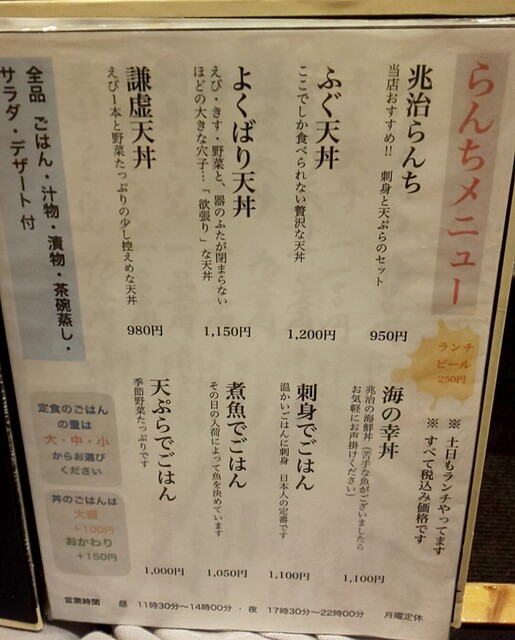 らんちメニュー
兆治らんち
当店おすすめ!! 刺身と天ぷらのセット
950円
ふぐ天丼
ここでしか食べられない贅沢な天丼
1,200円
よくばり天丼
えび・きす・野菜と、器のふたが閉まらない
ほどの大きな穴子…「欲張り」な天丼
1,150円
謙虚天丼
えび1本と野菜たっぷりの少し控えめな天丼
980円
全品 ごはん・汁物・漬物・茶碗蒸し・
サラダ・デザート 付
ランチ
ビール
250円
※ 土日もランチやってます
※ すべて税込み価格です
海の幸丼
兆治の海鮮丼(苦手な魚がございましたら
お気軽にお声掛けください)
1,100円
刺身でごはん
温かいごはんに刺身 日本人の定番です
1,100円
煮魚でごはん
その日の入荷によって魚を決めています
1,050円
天ぷらでごはん
季節野菜たっぷりです
1,000円
定食のごはん
の量は
大・中・小
からお選び
ください
丼のごはんは
大盛
+100円
おかわり
+150円
営業時間 昼 11時30分〜14時00分・夜 17時30分〜22時00分 月曜定休